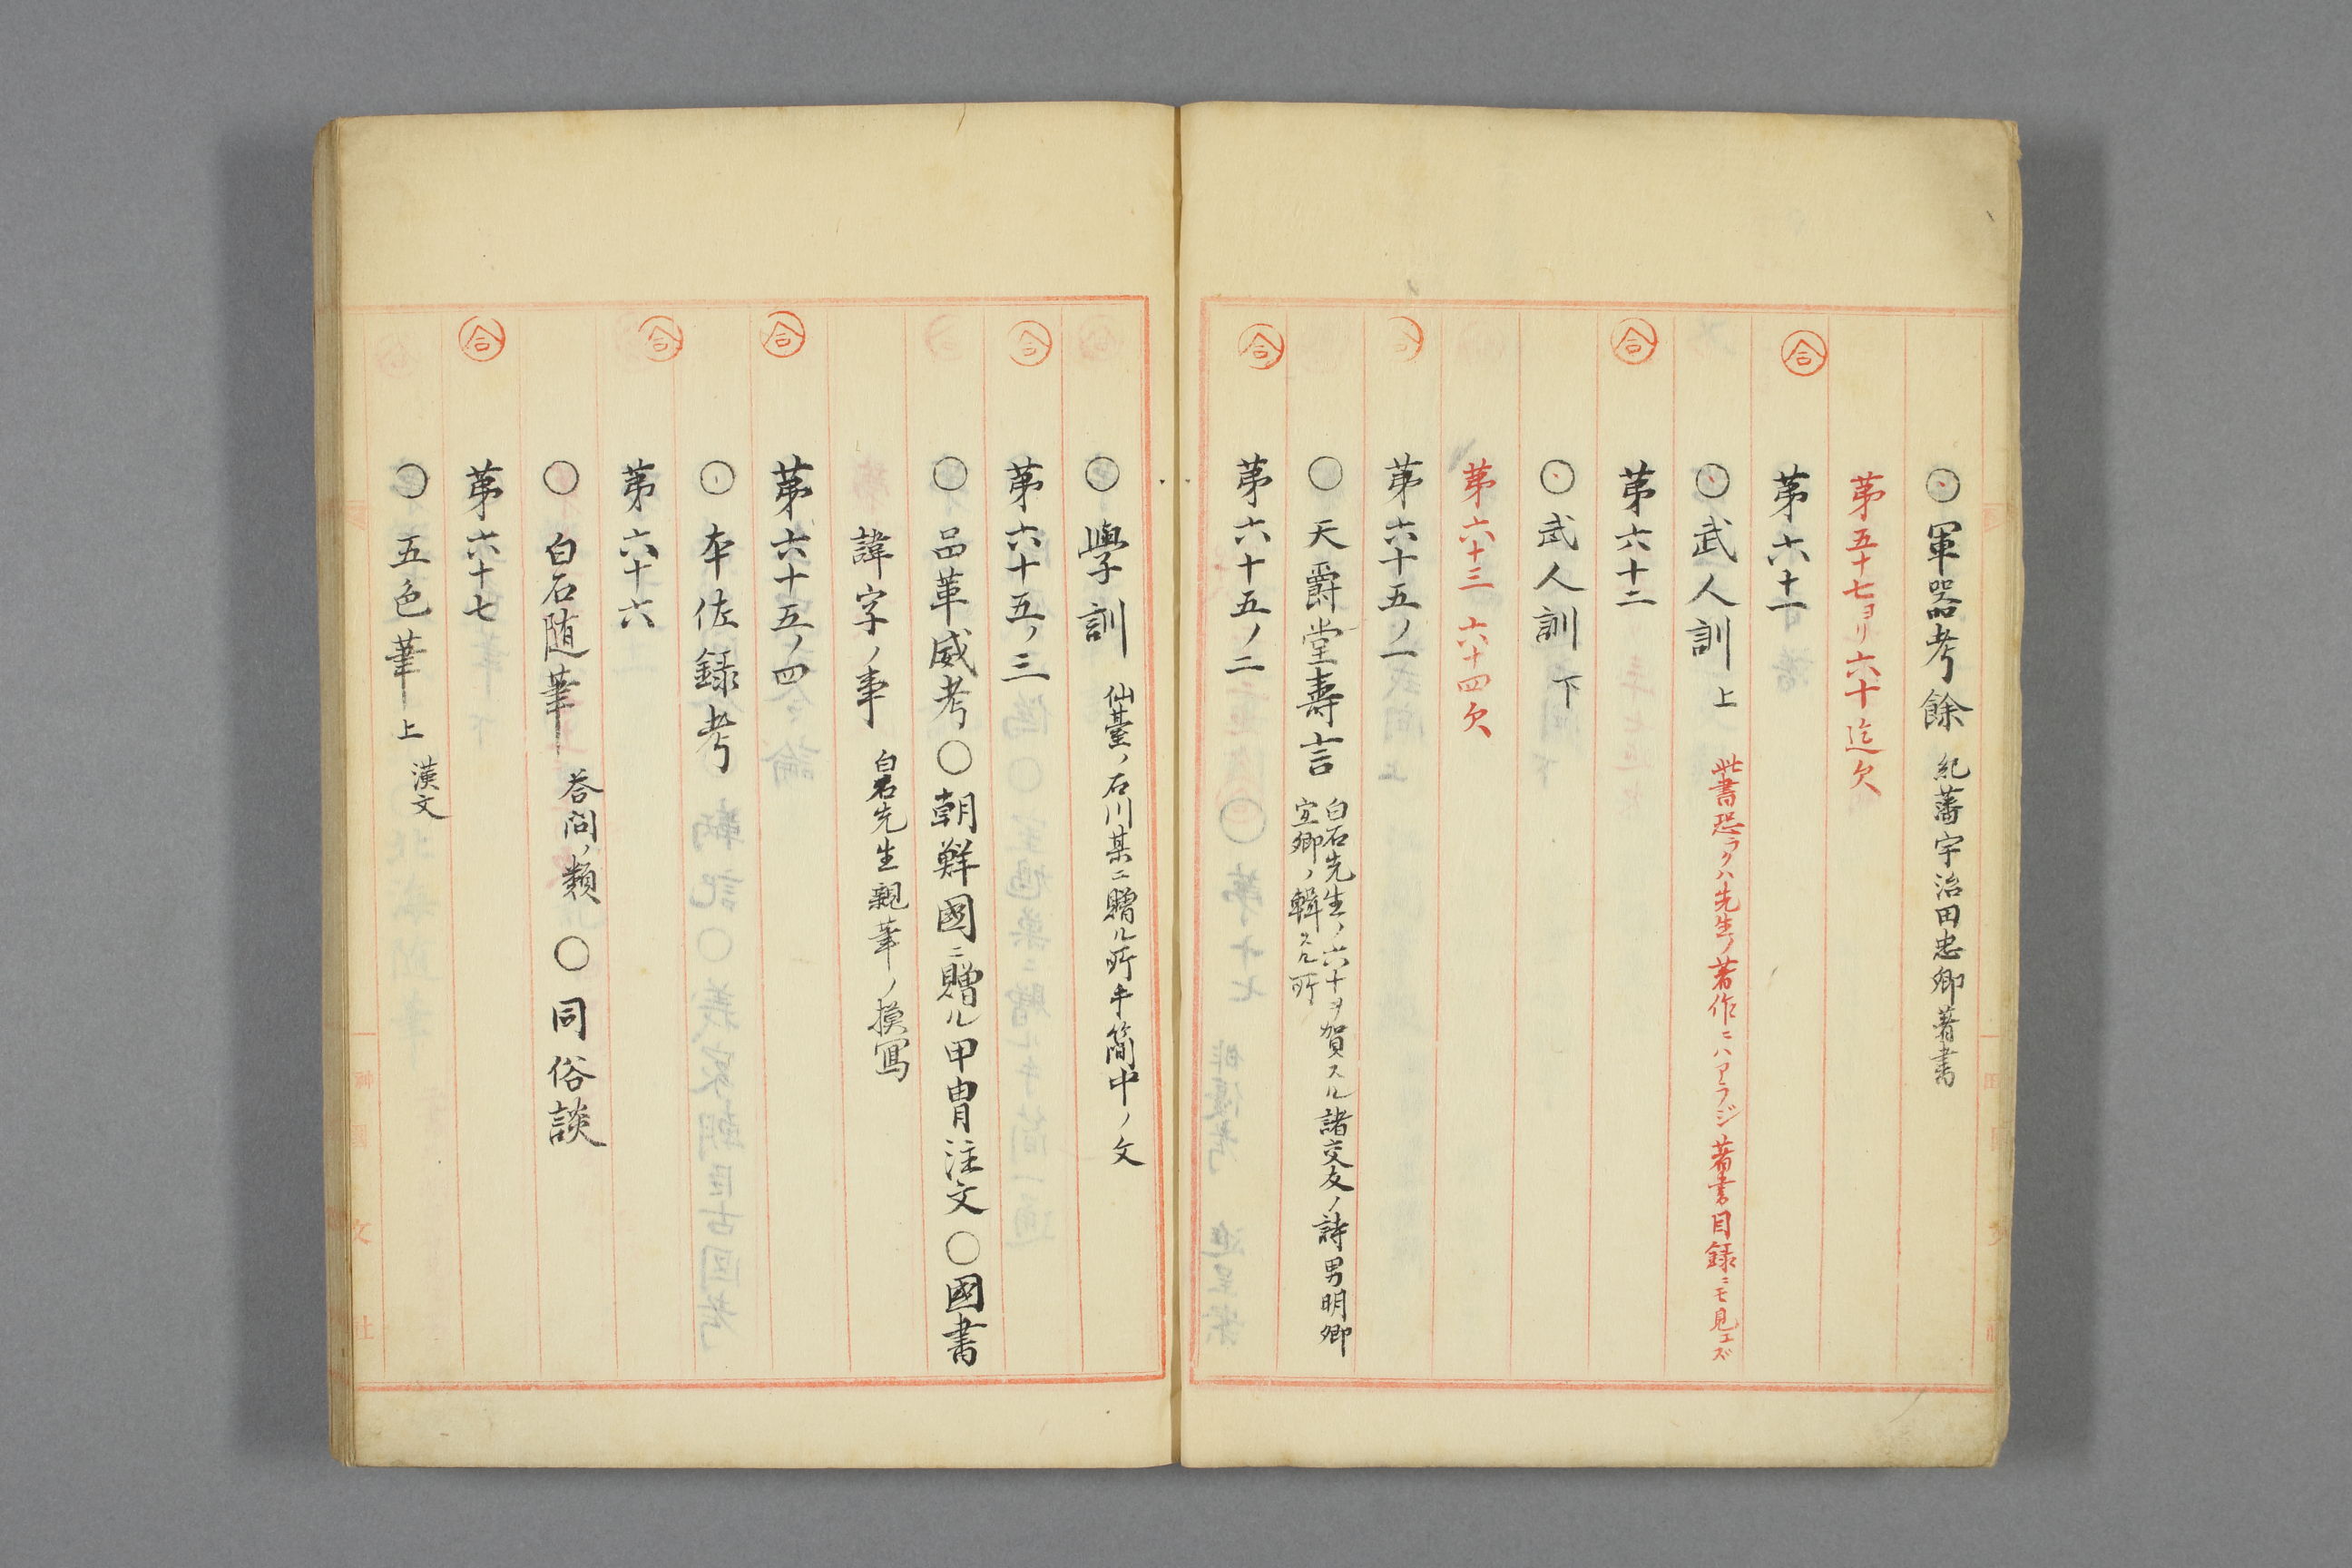 ○軍器考餘 紀藩宇治田忠卿著書
第五十七ヨリ六十迄欠
合
第六十一
○武人訓 上 此書恐ラクハ先生ノ著作ニハアラジ著書目録ニモ見エズ
合
第六十二
○武人訓 下
第六十三 六十四欠
合
第六十五ノ一
○天爵堂壽言 白石先生ノ六十ヲ賀スル諸交友ノ詩男明卿
宜卿ノ輯スル所
合
第六十五ノ二
○學訓 仙臺ノ石川某ニ贈ル所手簡中ノ文
合
第六十五ノ三
○品革威考○朝鮮國ニ贈ル甲冑注文○國書
諱字ノ事 白石先生親筆ノ摸寫
合
第六十五ノ四
○本佐録考
合
第六十六
○白石随筆 答問ノ類 ○同俗談
合
第六十七
○五色筆 上 漢文